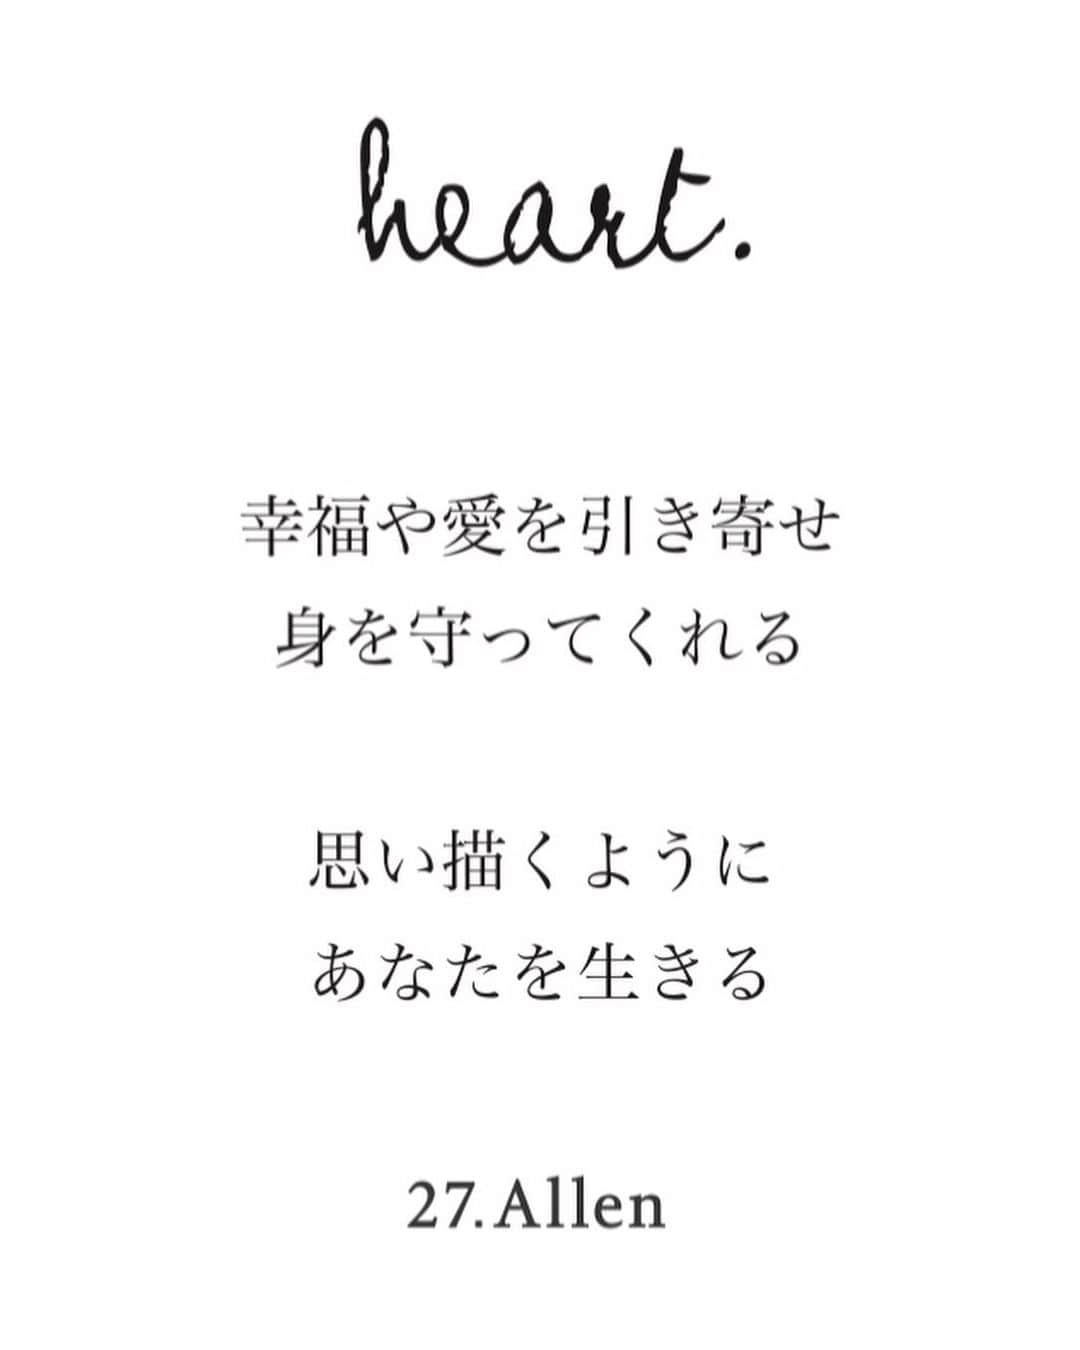 heart.
幸福や愛を引き寄せ
身を守ってくれる
思い描くように
あなたを生きる
27.Allen